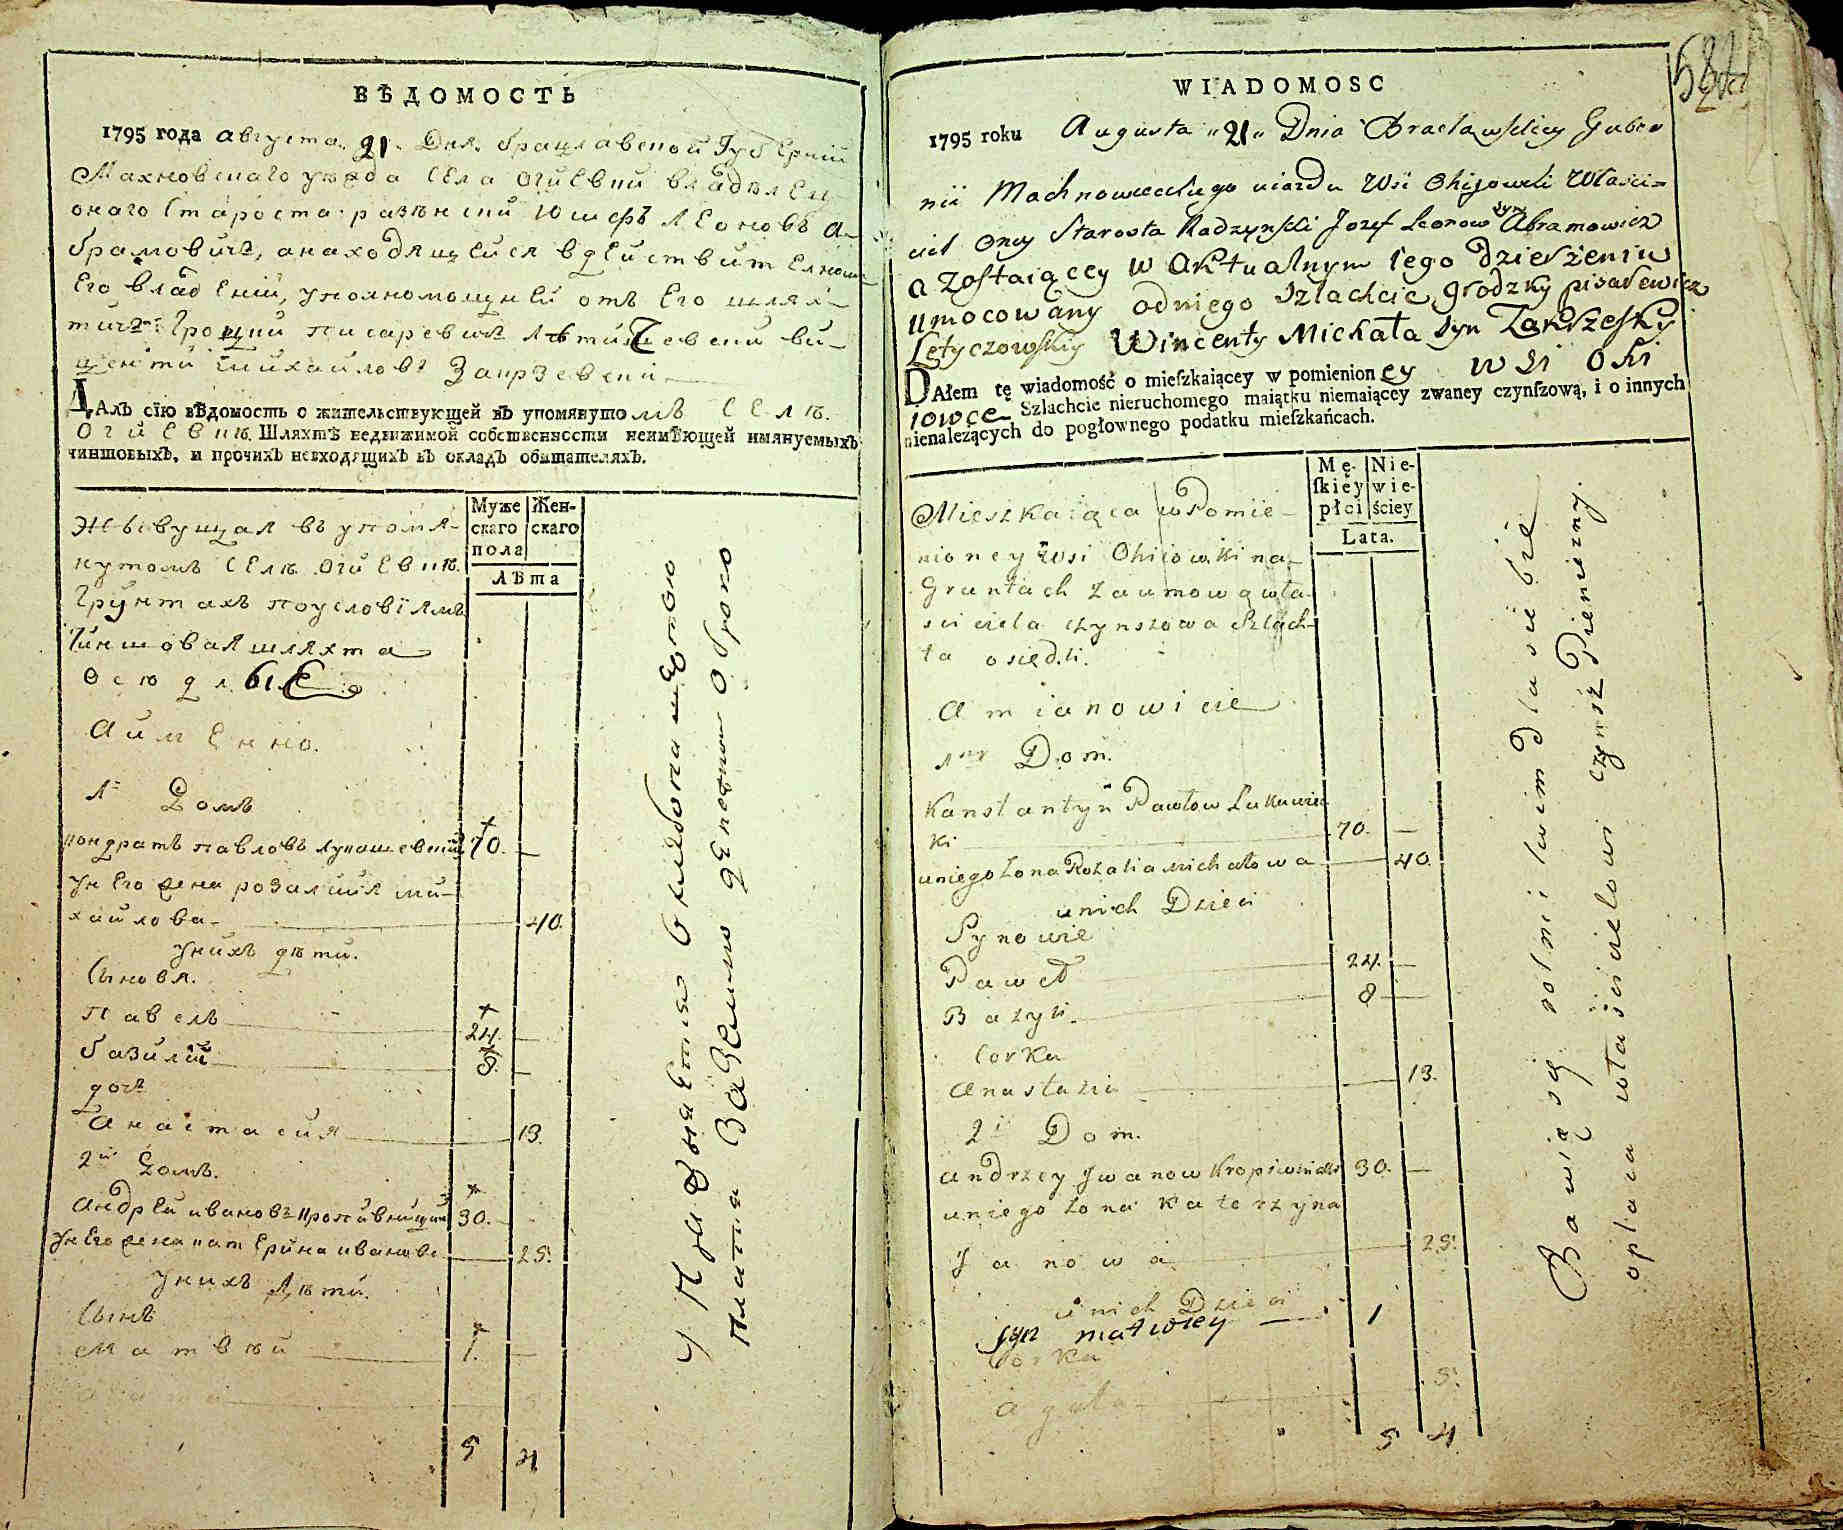 ВѢДОМОСТЬ
1795 года августа 21 Дня брацлавской Губернии
Махновскаго уезда села огиевки владелец
онаго Староста разънский Юшефъ Леоновъ а-
брамовичъ, анаходящейся вдействительном
Его владений, уполномощней отъ Его шлях-
тичъ Гроцкий писаревичъ Летичевский ви-
центий Михайловъ Закрзевский
ДАлъ сїю вѣдомость о жительствующей въ упомянутомъ селѣ
огиевке. Шляхтѣ недвижимой собственности неимѣющей имянуемыхъ
чиншовыхъ, и прочихъ невходящихъ въ окладъ обыщателяхъ.
Муже Жен-
скаго скаго
пола
Лѣта
Жывущая въ упомя-
нутомъ селѣ огиевке.
Грунтахъ поусловїямъ
Чиншовая шляхта
оседлые
Аименно.
1й Домъ
кондратъ павловъ лукашевский 70. —
унего жена розалия ми-
хайлова — 40.
Унихъ дети.
Сыновя.
Павелъ — 24. —
базилий — 8. —
дочь
Анастасия — 13.
2й Домъ.
Андрей ивановъ кропивницкий 30. —
унего жена катерина иванова — 25.
Унихъ дети.
Сынъ
Матвей — 1. —
5 4
Платя Заземлю
WIADOMOSC
1795 roku Augusta "21" Dnia Bracławskiey Guber
nii Machnowieckiego uiazdu Wsi Ohijowki Właści-
ciel Oney Starosta Radzynski Jozef Leonow syn Abramowicz
a zostaiącey w aktualnym iego dzierżeniu
umocowany odniego szlachcic grodzky pisarewicz
Letyczowskiy Wincenty Michała syn Zakrzesky
DAłem tę wiadomość o mieſzkaiącey w pomienioney wsi Ohi
iowce Szlachcie nieruchomego maiątku niemaiącey zwaney czynſzową, i o innych
nienależących do pogłownego podatku mieſzkańcach.
Mę- Nie-
ſkiey wie-
płci ściey
Lata.
Mieszkaiąca wPomie-
nioney wsi Ohiiowki na-
Gruntach zaumową wła-
sciciela czynszowa Szlach-
ta osiedli.
Amianowicie
1ny Dom.
Kanstantyn Pawłow Lukawiec
ki — 70. —
uniego żona Rozalia Michałowa — 40.
unich Dzieci
Synowie
Paweł — 24. —
Bazyli — 8 —
Corka
Anastazia — 13.
2i Dom.
Andrzey Jwanow Kropiwnicki 30. —
uniego żona Katerzyna
Janowa — 25.
unich Dzieci
syn matwiey — 1
Corka
Agata — 5.
5 4
Bawią się rolnictwim dla siebie
opłaca właścicielowi czynsz Pienieżny.